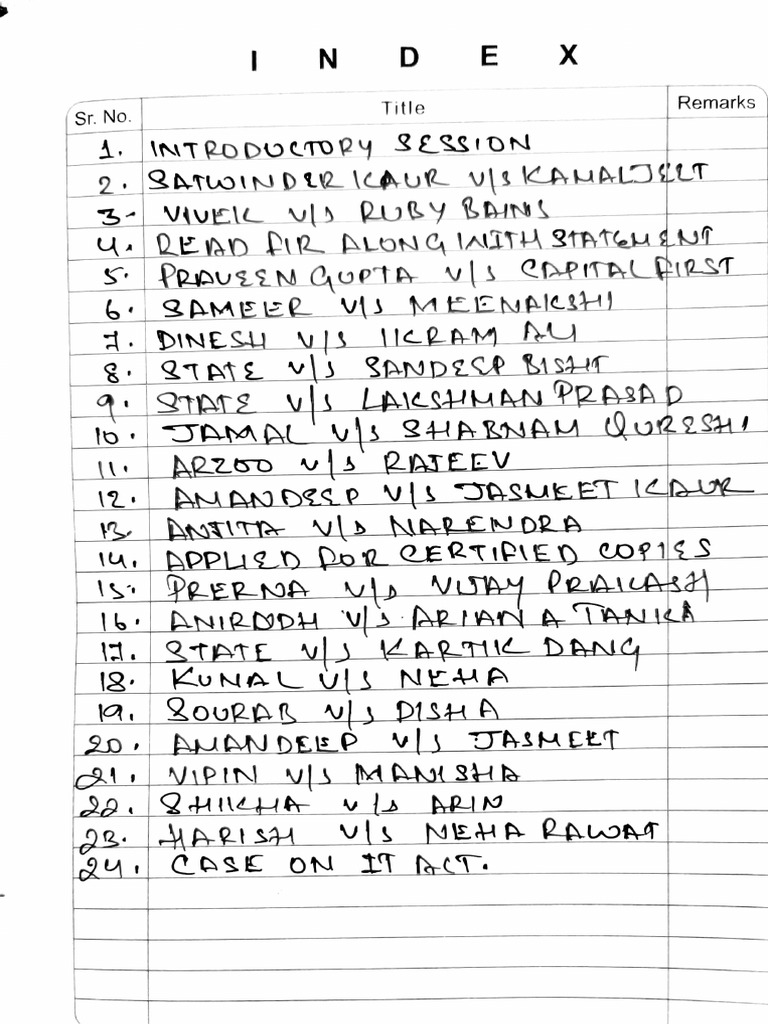 INDEX
Sr. No. Title Remarks
1. INTRODUCTORY SESSION
2. SATWINDER KAUR V/S KAMALJEET
3- VIVEK V/S RUBY BAINS
4. READ FIR ALONG WITH STATEMENT
5. PRAVEEN GUPTA V/S CAPITAL FIRST
6. SAMEER V/S MEENAKSHI
7. DINESH V/S IKRAM ALI
8. STATE V/S SANDEEP BISHT
9. STATE V/S LAKSHMAN PRASAD
10. JAMAL V/S SHABNAM QURESHI
11. ARZOO V/S RAJEEV
12. AMANDEEP V/S JASMEET KAUR
13. ANJITA V/S NARENDRA
14. APPLIED FOR CERTIFIED COPIES
15. PRERNA V/S VIJAY PRAKASH
16. ANIRUDH V/S ARIANA TANIKA
17. STATE V/S KARTIK DANG
18. KUNAL V/S NEHA
19. SOURAB V/S DISHA
20. AMANDEEP V/S JASMEET
21. VIPIN V/S MANISHA
22. SHIKHA V/S ARIN
23. HARISH V/S NEHA RAWAT
24. CASE ON IT ACT.